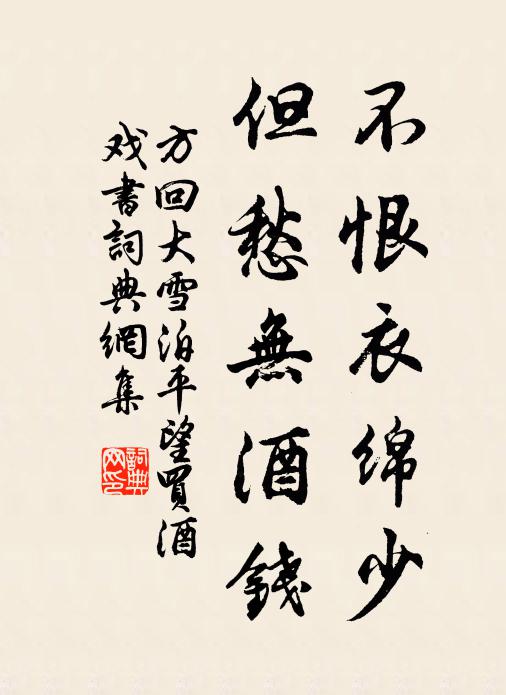 不恨衣绵少
但愁無酒錢
方回大雪泊平望買酒
戏書詞典網集
詞典網印